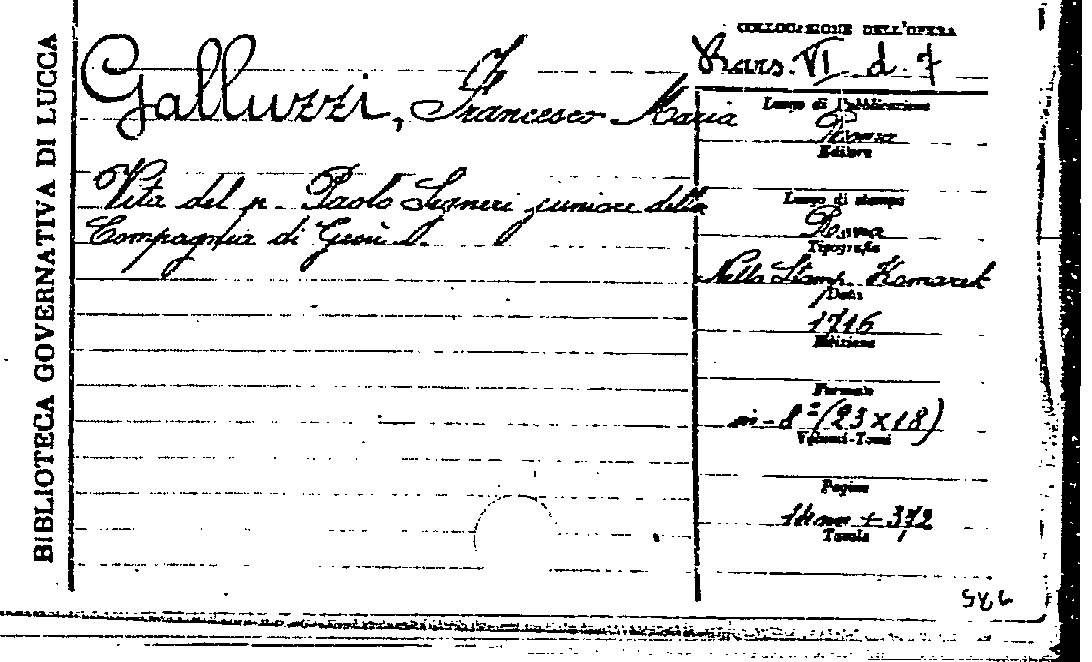 BIBLIOTECA GOVERNATIVA DI LUCCA
Galluzzi, Francesco Maria
Vita del p. Paolo Segneri juniore della
Compagnia di Gesù
COLLOCAZIONE DELL'OPERA
VI d. 7
Luogo di Pubblicazione
Roma
Editore
Luogo di stampa
Roma
Tipografia
Nella Stamp. Komarek
Data
1716
Edizione
Formato
in-8° (23x18)
Volumi-Tomi
Pagine
+ 372
Tavole